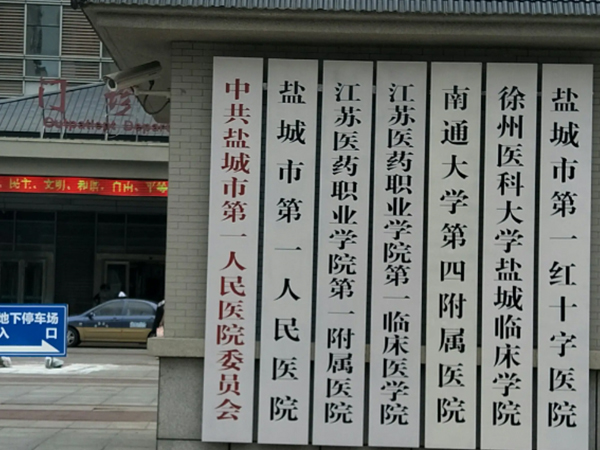 中共盐城市第一人民医院委员会
盐城市第一人民医院
江苏医药职业学院第一附属医院
江苏医药职业学院第一临床医学院
南通大学第四附属医院
徐州医科大学盐城临床学院
盐城市第一红十字医院
门诊
民主、文明、和谐、自由、平等
地下停车场
入 口